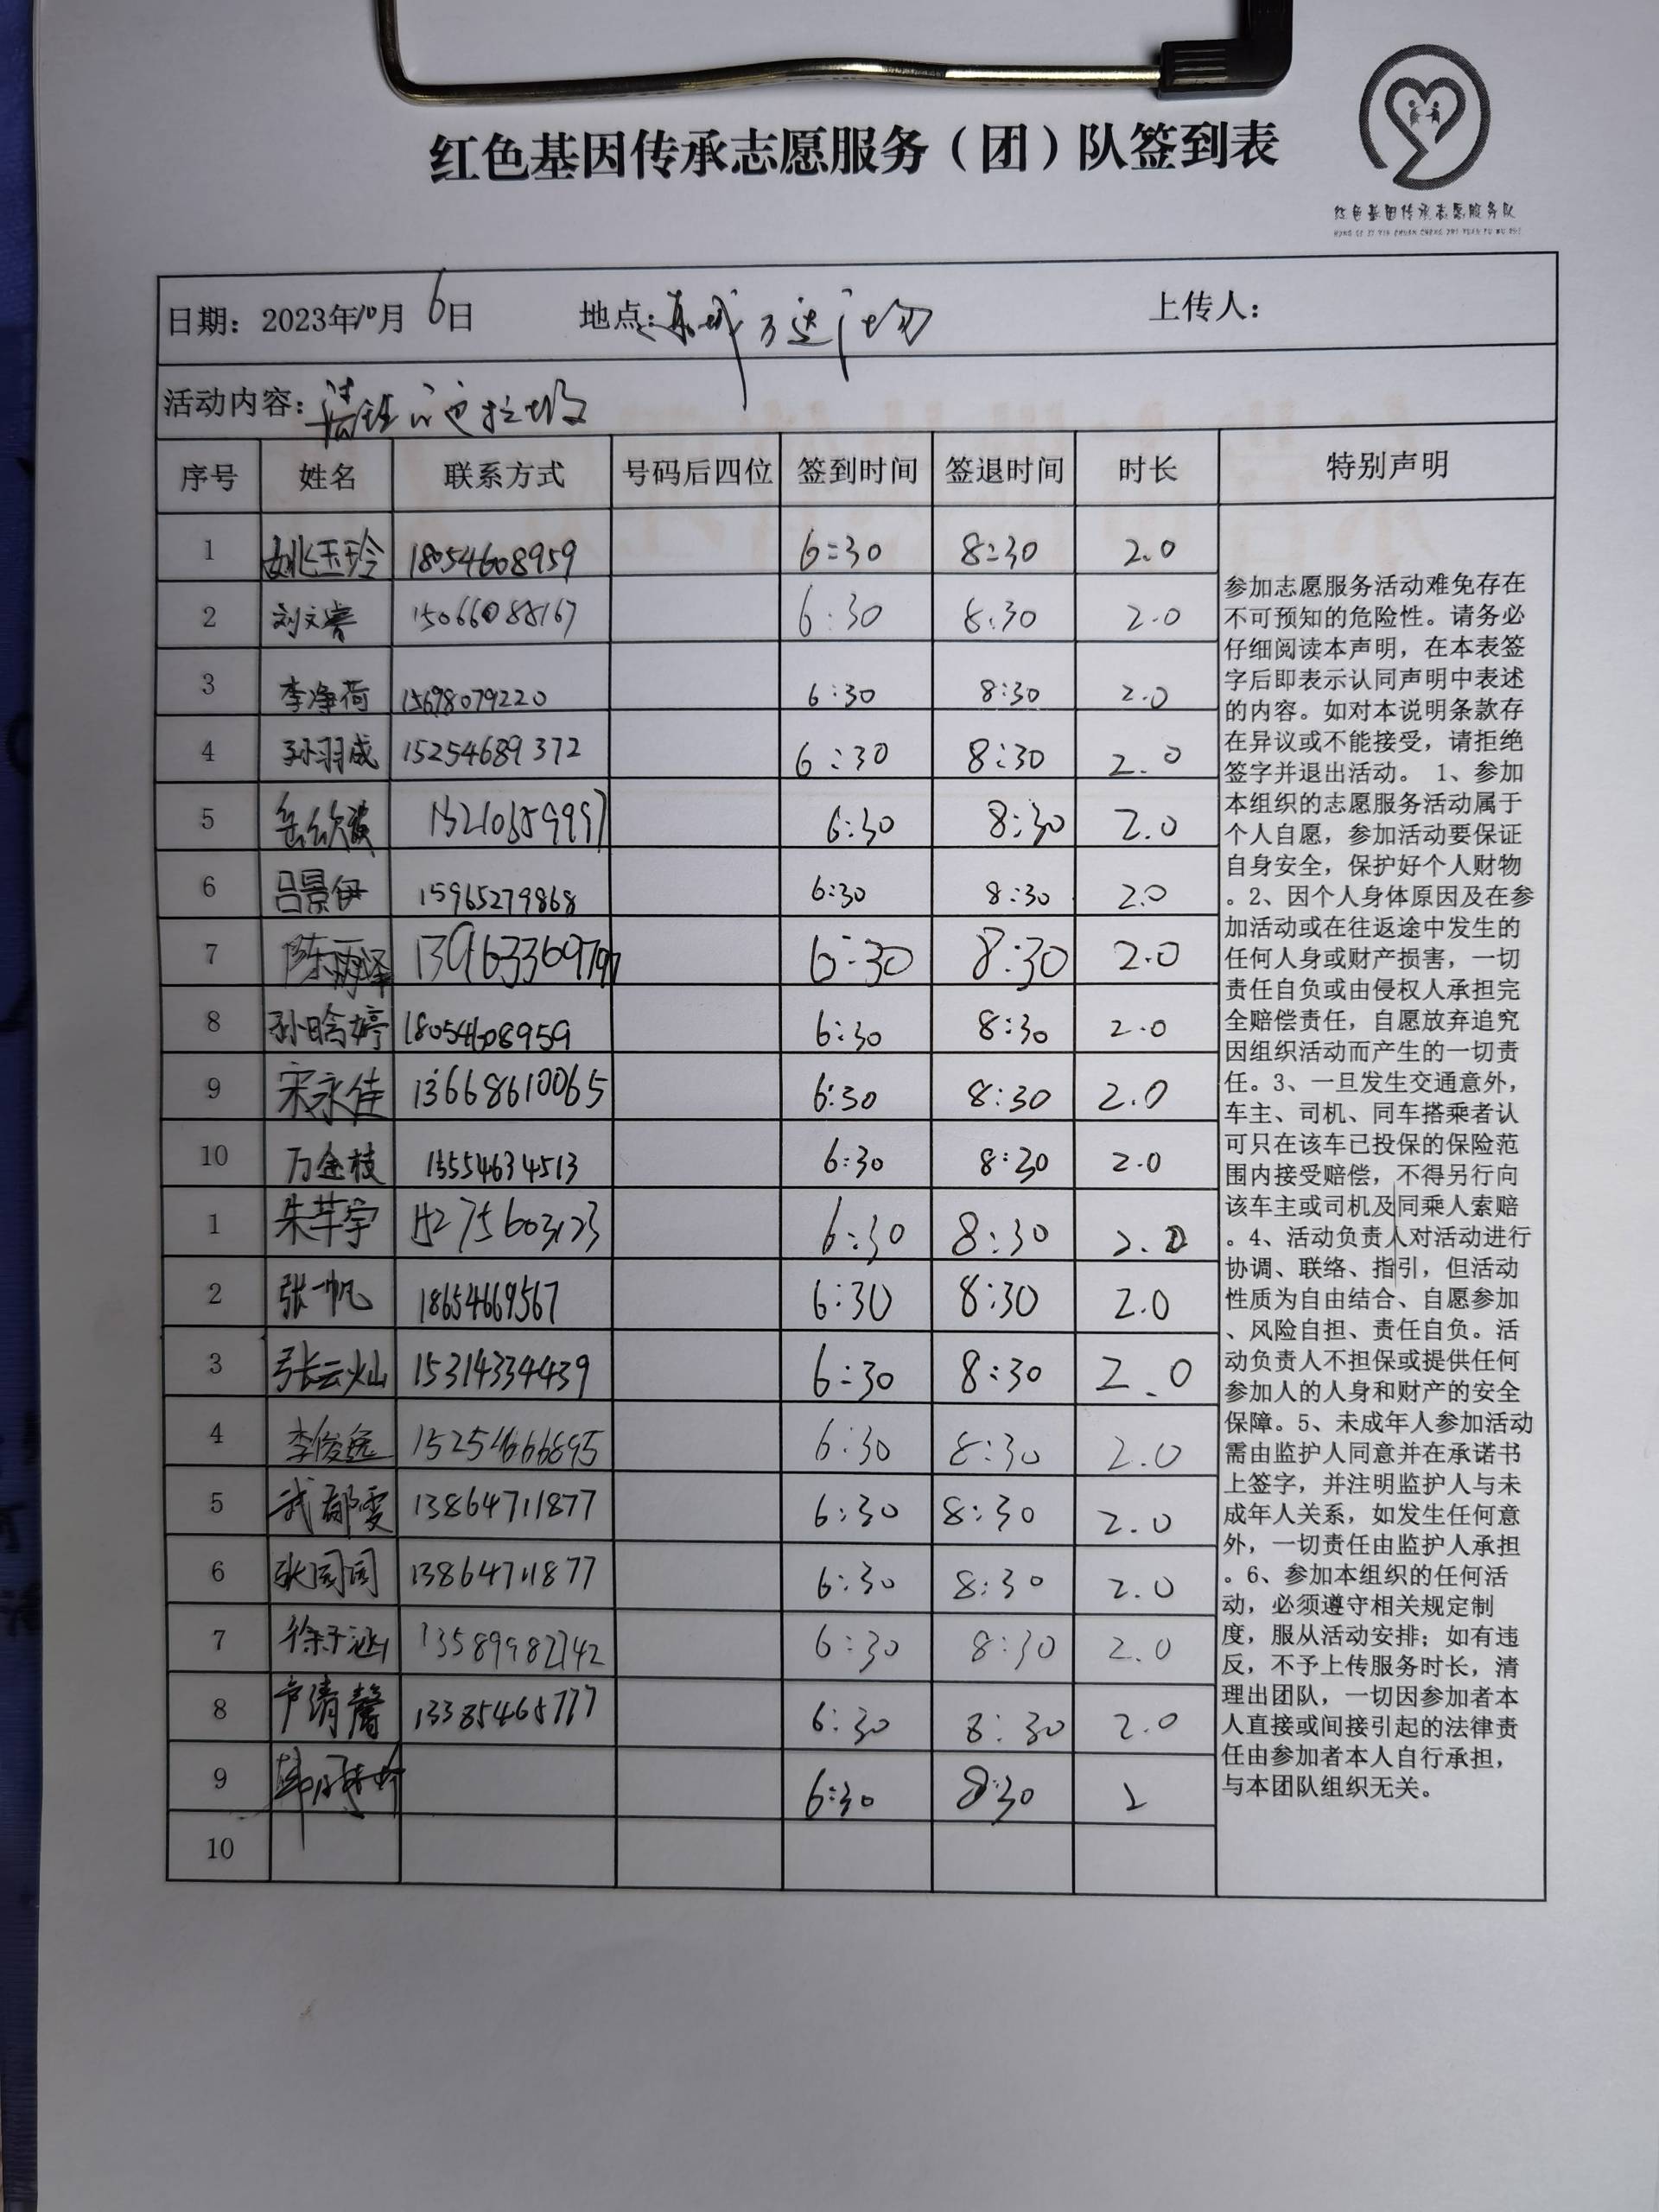 红色基因传承志愿服务（团）队签到表
红色基因传承志愿服务队
日期：2023年10月6日 地点：东城万达广场 上传人：
活动内容：清理 垃圾
序号 姓名 联系方式 号码后四位 签到时间 签退时间 时长 特别声明
1 姚玉玲 18054608959 6:30 8:30 2.0
2 刘文睿 15066088167 6:30 8:30 2.0
3 李净荷 15698079220 6:30 8:30 2.0
4 孙羽成 15254689372 6:30 8:30 2.0
5 6:30 8:30 2.0
6 吕景伊 15965279868 6:30 8:30 2.0
7 陈雨泽 6:30 8:30 2.0
8 孙晗婷 18054608959 6:30 8:30 2.0
9 宋永佳 13668610065 6:30 8:30 2.0
10 万金枝 13554634513 6:30 8:30 2.0
1 朱芊宇 15275603123 6:30 8:30 2.0
2 张一帆 18654669567 6:30 8:30 2.0
3 张云灿 15314334439 6:30 8:30 2.0
4 李俊逸 15254666895 6:30 8:30 2.0
5 武郁雯 13864711877 6:30 8:30 2.0
6 张园园 13864711877 6:30 8:30 2.0
7 徐子涵 13589982742 6:30 8:30 2.0
8 卢清馨 13385465777 6:30 8:30 2.0
9 6:30 8:30 2
10
参加志愿服务活动难免存在
不可预知的危险性。请务必
仔细阅读本声明，在本表签
字后即表示认同声明中表述
的内容。如对本说明条款存
在异议或不能接受，请拒绝
签字并退出活动。 1、参加
本组织的志愿服务活动属于
个人自愿，参加活动要保证
自身安全，保护好个人财物
。2、因个人身体原因及在参
加活动或在往返途中发生的
任何人身或财产损害，一切
责任自负或由侵权人承担完
全赔偿责任，自愿放弃追究
因组织活动而产生的一切责
任。3、一旦发生交通意外，
车主、司机、同车搭乘者认
可只在该车已投保的保险范
围内接受赔偿，不得另行向
该车主或司机及同乘人索赔
。4、活动负责人对活动进行
协调、联络、指引，但活动
性质为自由结合、自愿参加
、风险自担、责任自负。活
动负责人不担保或提供任何
参加人的人身和财产的安全
保障。5、未成年人参加活动
需由监护人同意并在承诺书
上签字，并注明监护人与未
成年人关系，如发生任何意
外，一切责任由监护人承担
。6、参加本组织的任何活
动，必须遵守相关规定制
度，服从活动安排；如有违
反，不予上传服务时长，清
理出团队，一切因参加者本
人直接或间接引起的法律责
任由参加者本人自行承担，
与本团队组织无关。